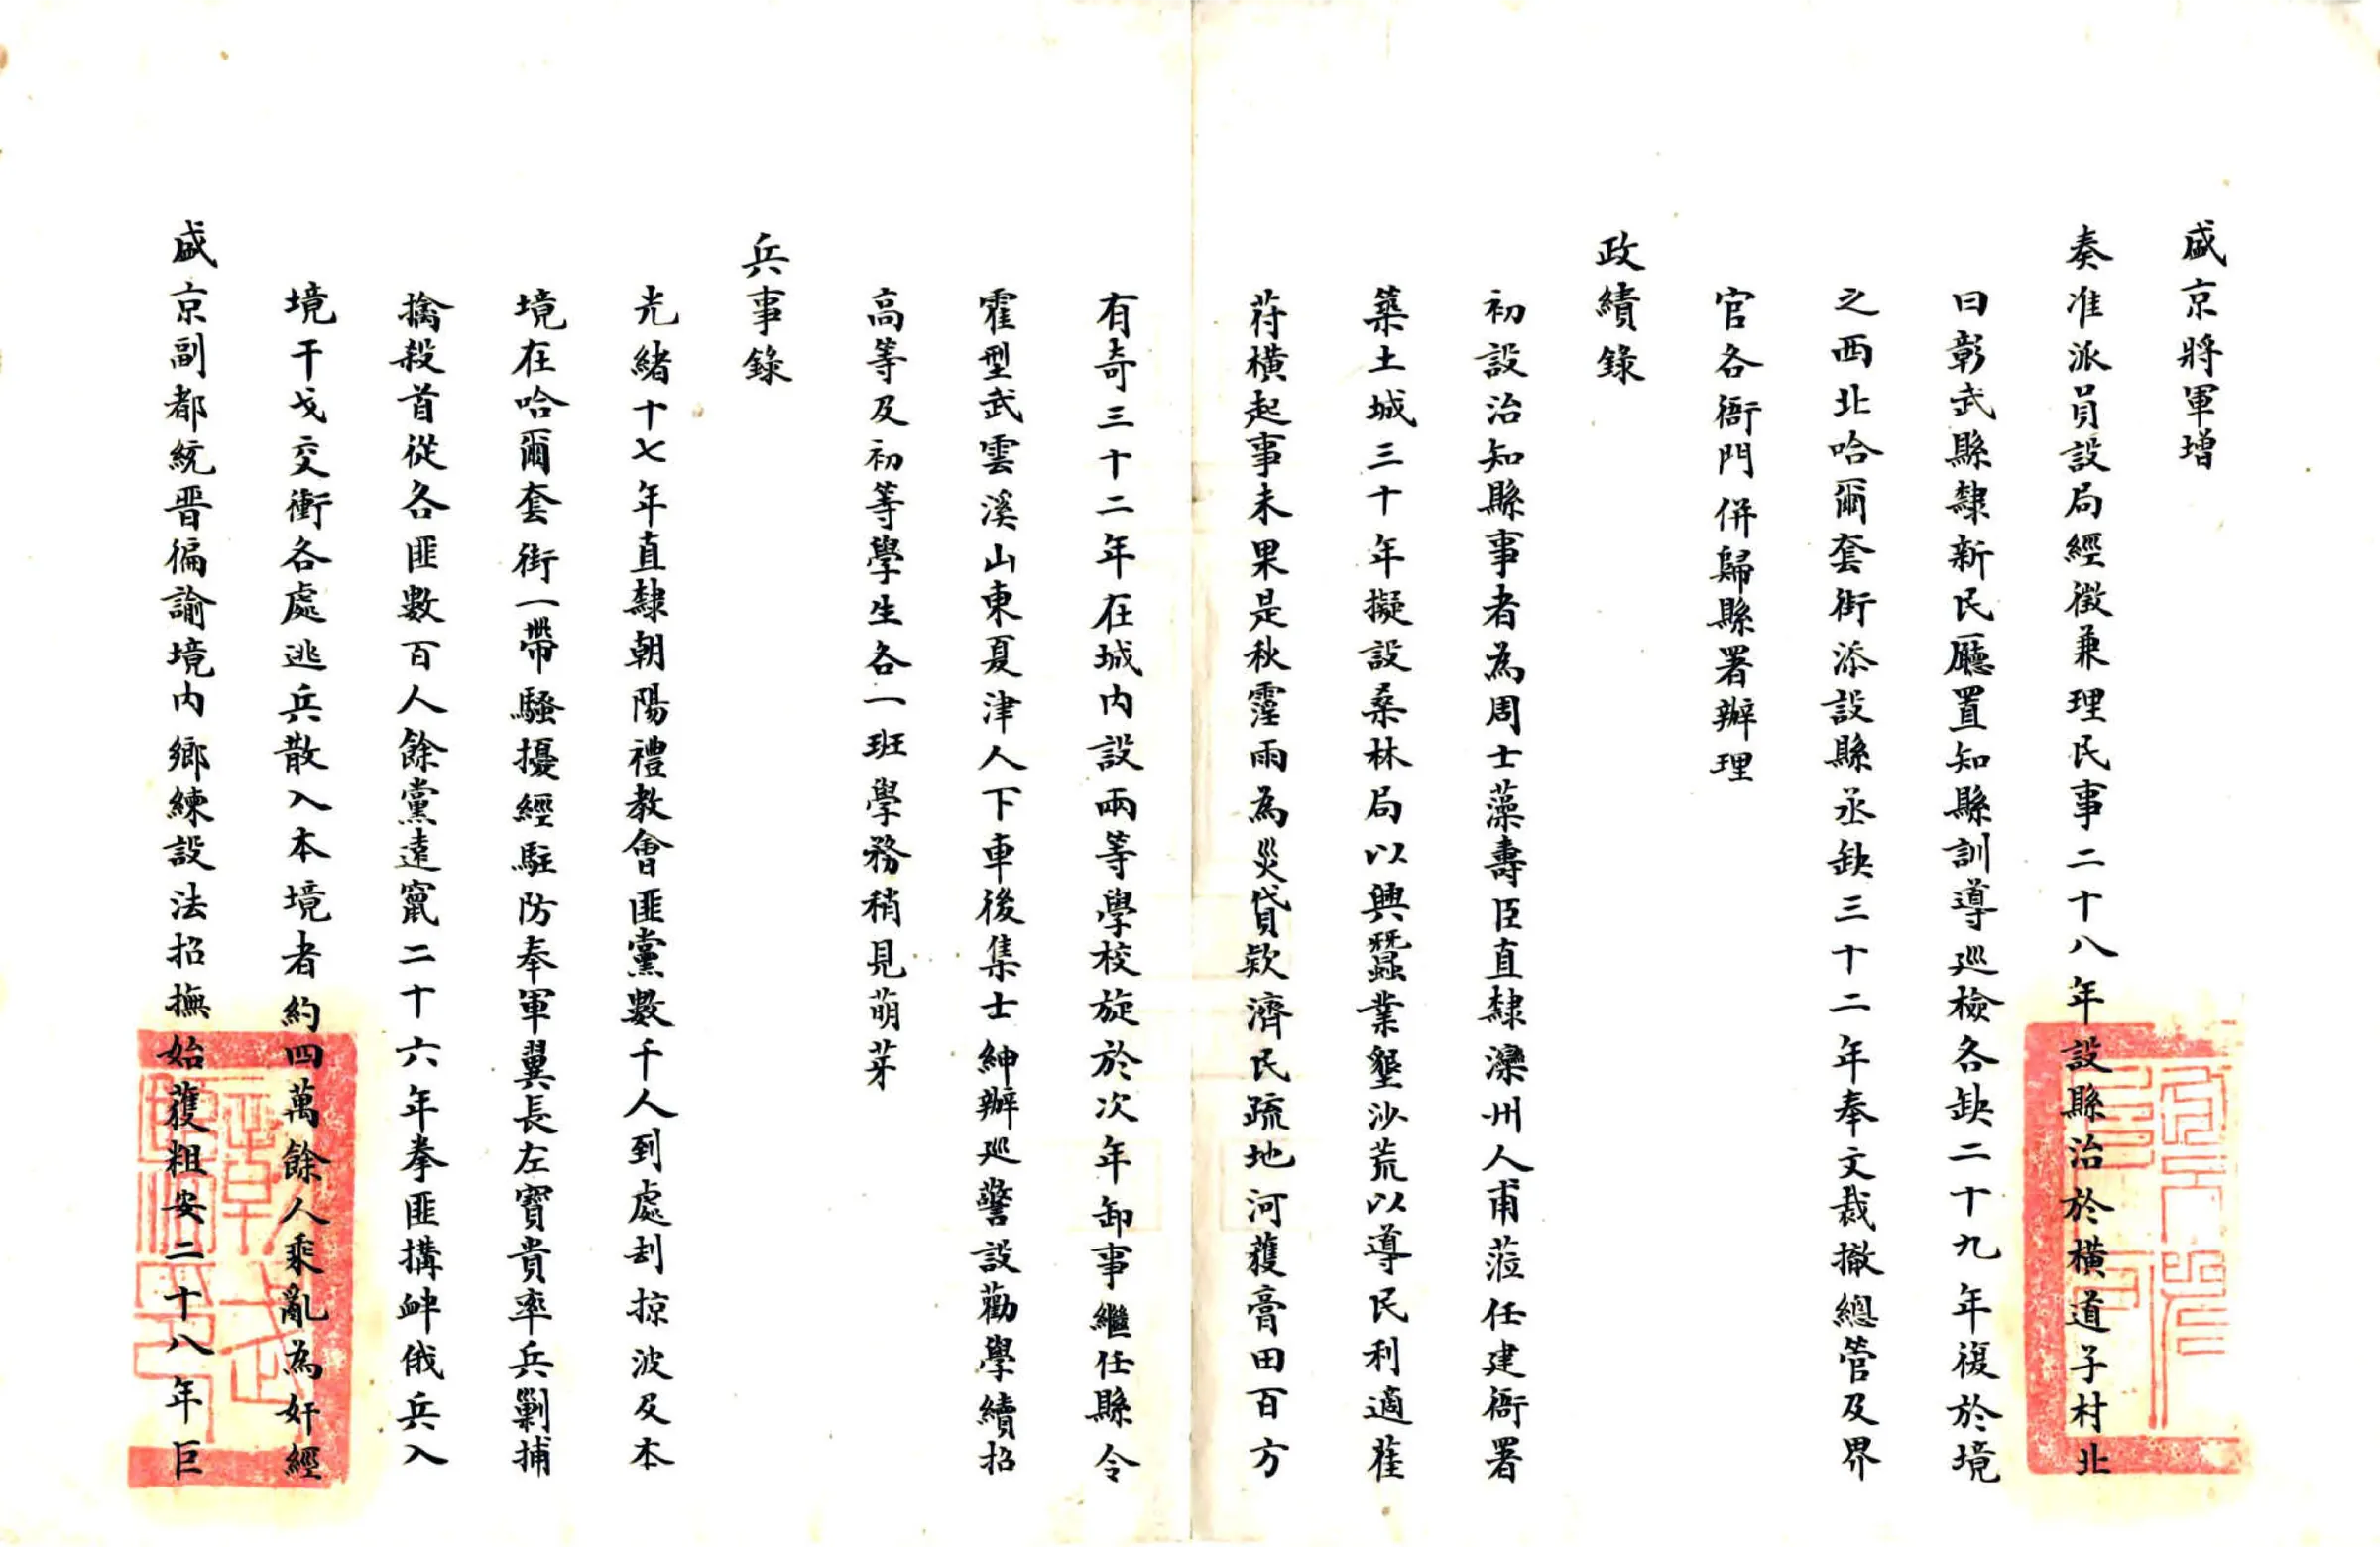 盛京將軍增
奏准派員設局經徵兼理民事二十八年設縣治於橫道子村北
曰彰武縣隸新民廳置知縣訓導巡檢各缺二十九年復於境
之西北哈爾套街添設縣丞缺三十二年奉文裁撤總管及界
官各衙門併歸縣署辦理
政績錄
初設治知縣事者為周士藻壽臣直隸灤州人甫蒞任建衙署
築土城三十年擬設桑林局以興蠶業墾沙荒以導民利適萑
苻橫起事未果是秋霪雨為災貸款濟民疏地河獲膏田百方
有奇三十二年在城內設兩等學校旋於次年卸事繼任縣令
霍型武雲溪山東夏津人下車後集士紳辦巡警設勸學續招
高等及初等學生各一班學務稍見萌芽
兵事錄
光緒十七年直隸朝陽禮教會匪黨數千人到處刦掠波及本
境在哈爾套街一帶騷擾經駐防奉軍翼長左寶貴率兵剿捕
擒殺首從各匪數百人餘黨遠竄二十六年拳匪搆衅俄兵入
境干戈交衝各處逃兵散入本境者約四萬餘人乘亂為奸經
盛京副都統晋徧諭境內鄉練設法招撫始獲粗安二十八年巨